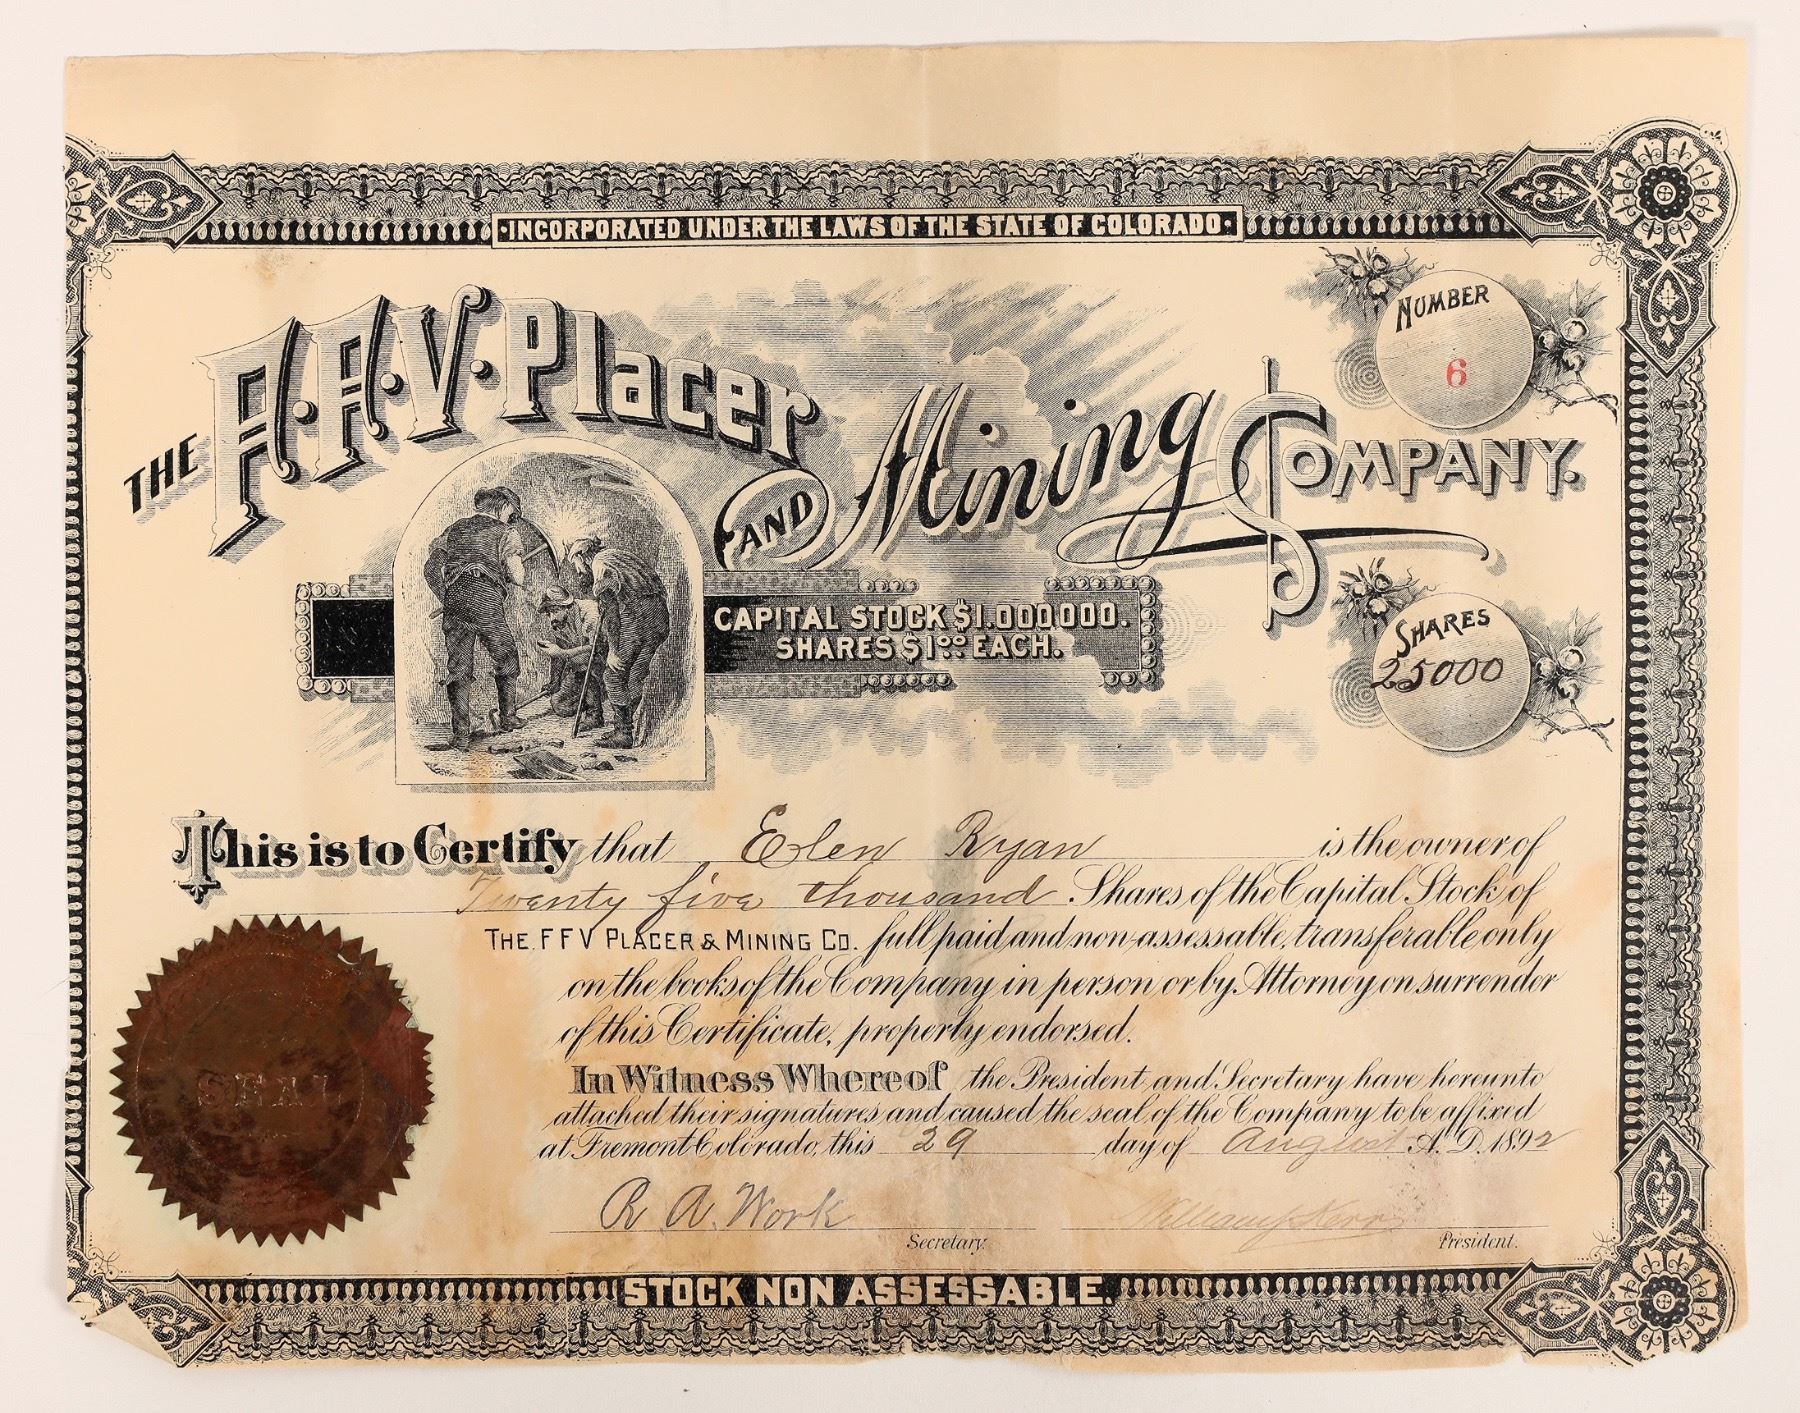 INCORPORATED UNDER THE LAWS OF THE STATE OF COLORADO
THE F.F.V. Placer AND Mining COMPANY.
NUMBER
6
CAPITAL STOCK $1.000000.
SHARES $1.00 EACH.
SHARES
25000
This is to Certify that Elen Ryan is the owner of
Twenty five thousand Shares of the Capital Stock of
THE F F V PLACER & MINING CO. full paid and non-assessable, transferable only
on the books of the Company in person or by Attorney on surrender
of this Certificate, properly endorsed.
In Witness Whereof the President and Secretary have hereunto
attached their signatures and caused the seal of the Company to be affixed
at Fremont Colorado, this 29 day of August A.D. 1892
SEAL
R A. Work
William J Kerr
Secretary.
President.
STOCK NON ASSESSABLE.